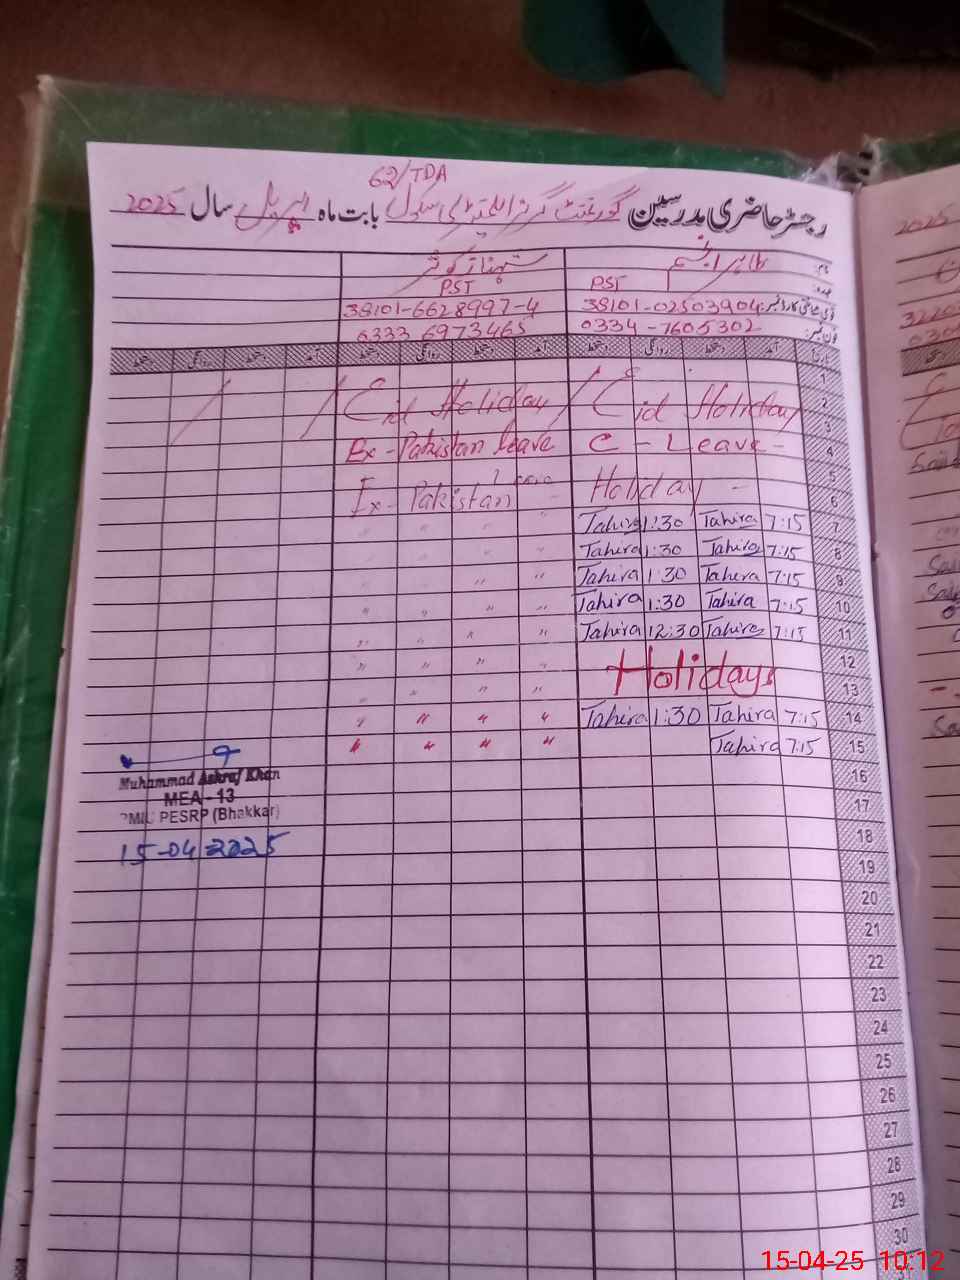 62/TDA
رجسٹر حاضری مدرسین گورنمنٹ گرلز ایلیمنٹری سکول بابت ماہ اپریل سال 2025
نام: طاہرہ شہناز کوثر
عہدہ: PST PST
38101-02503904 38101-6628997-4
فون نمبر: 0334-7605302 0333 6973465
تاریخ آمد دستخط روانگی دستخط آمد دستخط روانگی دستخط آمد دستخط روانگی دستخط
1
2 Eid Holiday Eid Holiday
3
4 C - Leave - Ex-Pakistan Leave
5
6 Holiday - Ex-Pakistan
7 7:15 Tahira 1:30 Tahira
8 7:15 Tahira 1:30 Tahira
9 7:15 Tahira 1:30 Tahira " "
10 7:15 Tahira 1:30 Tahira " " " "
11 7:15 Tahira 12:30 Tahira " " " "
12 Holidays " " " "
13 " " " "
14 7:15 Tahira 1:30 Tahira " " " "
15 7:15 Tahira " " " "
16
17
18
19
20
21
22
23
24
25
26
27
28
29
30
Muhammad Ashraf Khan
MEA-13
PMIU PESRP (Bhakkar)
15-04-2025
2025
15-04-25 10:12